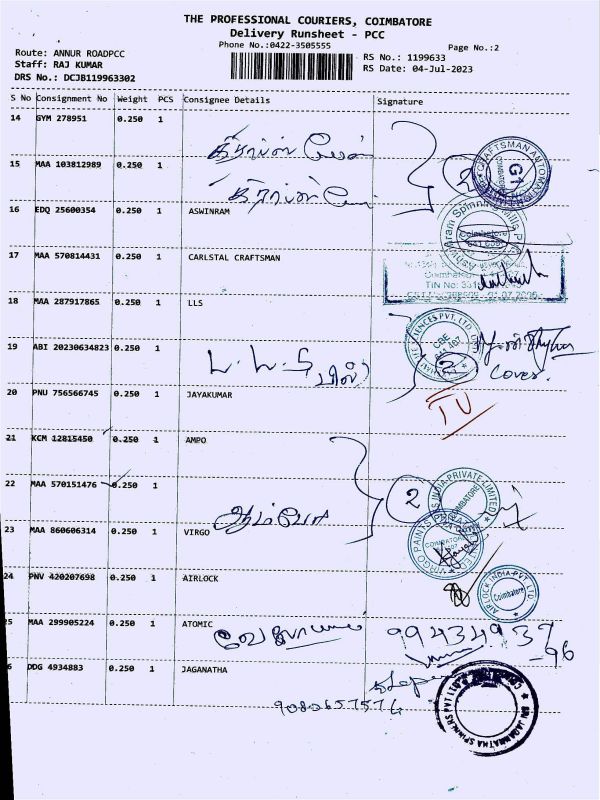 THE PROFESSIONAL COURIERS, COIMBATORE
Delivery Runsheet - PCC
Phone No.:0422-3505555
Page No.:2
Route: ANNUR ROADPCC
RS No.: 1199633
Staff: RAJ KUMAR
RS Date: 04-Jul-2023
DRS No.: DCJB119963302
S No Consignment No Weight PCS Consignee Details Signature
14 GYM 278951 0.250 1
15 MAA 103812989 0.250 1
2
CRAFTSMAN AUTOMA
G1
16 EDQ 25600354 0.250 1 ASWINRAM
Coimbatore
17 MAA 570814431 0.250 1 CARLSTAL CRAFTSMAN
Coimbatore
TIN No:
18 MAA 287917865 0.250 1 LLS
CBE
19 ABI 20230634823 0.250 1
2
Cover.
20 PNU 756566745 0.250 1 JAYAKUMAR
21 KCM 12815450 0.250 1 AMPO
22 MAA 570151476 0.250 1
2
INDIA PRIVATE LIMITED
COIMBATORE
ஆம்போ
23 MAA 860606314 0.250 1 VIRGO
VIRGO PAINTS PRIVATE LIMITED
24 PNV 420207698 0.250 1 AIRLOCK
AIRLOCK INDIA PVT LTD
Coimbatore
25 MAA 299905224 0.250 1 ATOMIC
99434937
-96
26 DDG 4934883 0.250 1 JAGANATHA
9080657576
SRI JAGANNATHA SPINNERS PVT LTD